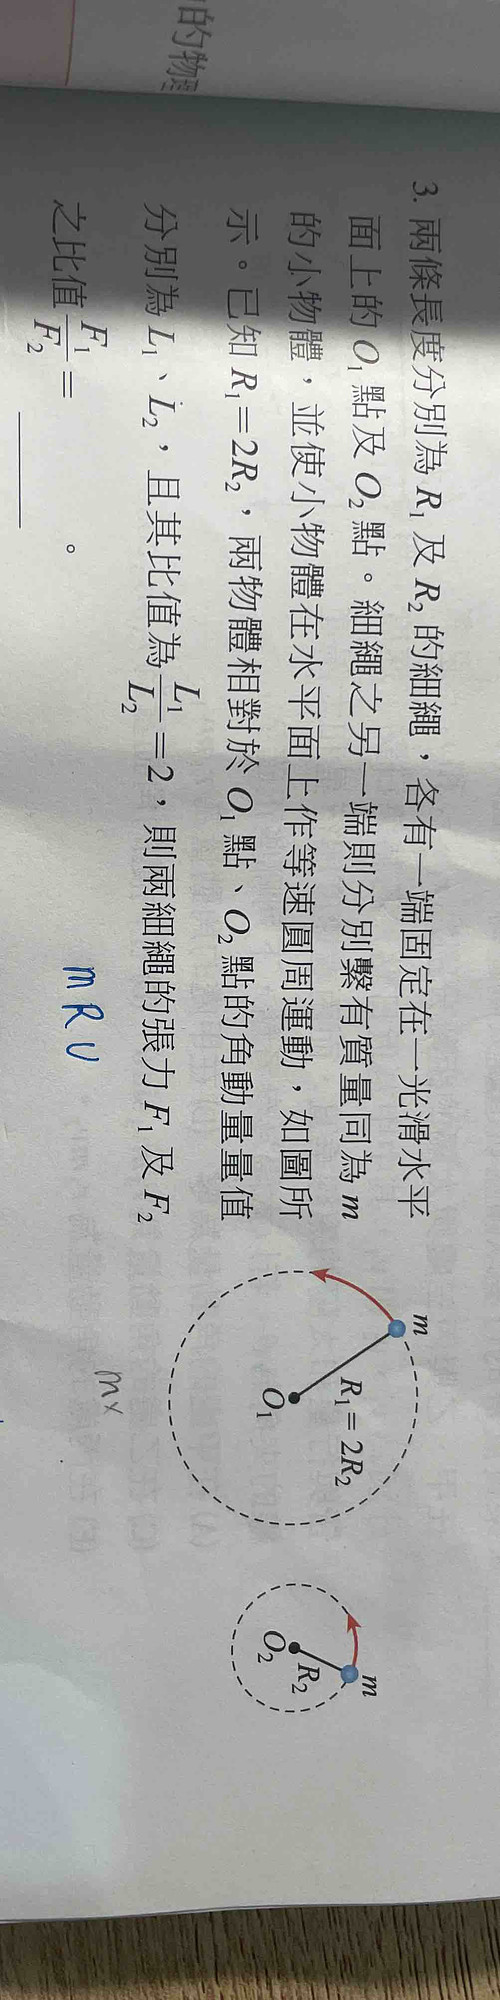 的物理
3. 兩條長度分別為 R₁ 及 R₂ 的細繩，各有一端固定在一光滑水平
面上的 O₁ 點及 O₂ 點。細繩之另一端則分別繫有質量同為 m
的小物體，並使小物體在水平面上作等速圓周運動，如圖所
示。已知 R₁=2R₂，兩物體相對於 O₁ 點、O₂ 點的角動量量值
分別為 L₁、L₂，且其比值為 L₁/L₂=2，則兩細繩的張力 F₁ 及 F₂
之比值 F₁/F₂= ______ 。
m R U
m
R₁=2R₂
O₁
m
R₂
O₂